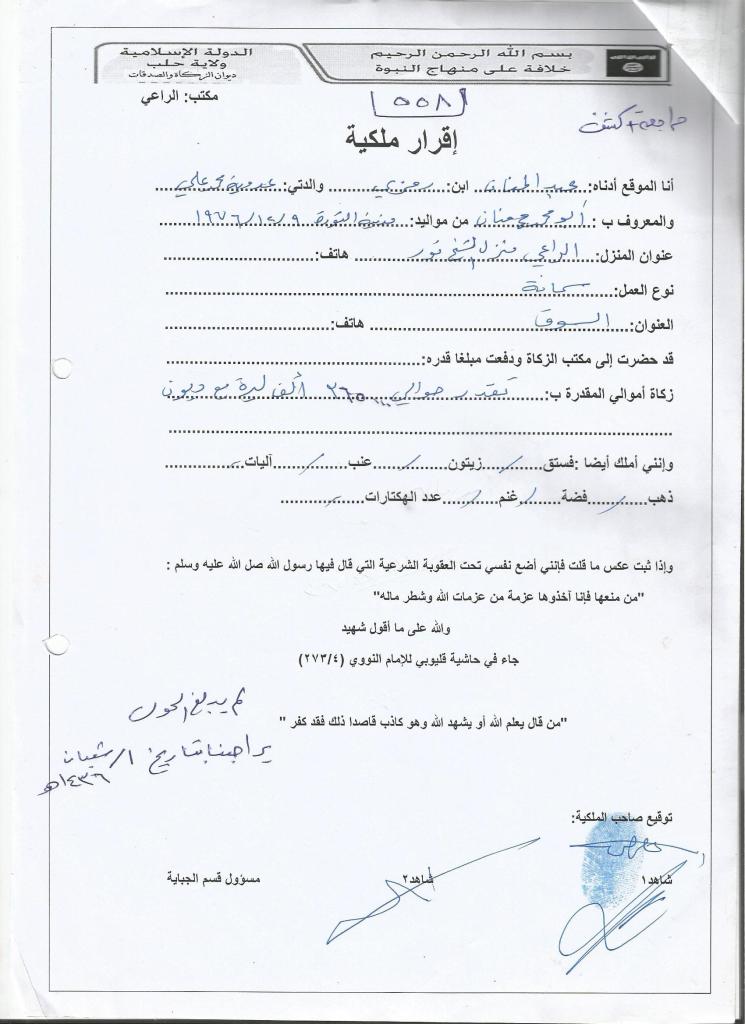 بسم الله الرحمن الرحيم
خلافة على منهاج النبوة
الدولة الإسلامية
ولاية حلب
ديوان الزكاة والصدقات
مكتب: الراعي
٥٥٨
إقرار ملكية
أنا الموقع أدناه: ابن: والدتي: محمد علي
والمعروف ب : أبو محمد من مواليد: ١٩٧٦/١٢/٩
عنوان المنزل: الراعي منزل الشيخ نور هاتف:
نوع العمل: سمانة
العنوان: السوق هاتف:
قد حضرت إلى مكتب الزكاة ودفعت مبلغا قدره:
زكاة أموالي المقدرة ب: تقدر حوالي ألف ليرة مع ديون
وإنني أملك أيضا :فستق / زيتون / عنب / آليات
ذهب / فضة / غنم / عدد الهكتارات
وإذا ثبت عكس ما قلت فإنني أضع نفسي تحت العقوبة الشرعية التي قال فيها رسول الله صل الله عليه وسلم :
"من منعها فإنا آخذوها عزمة من عزمات الله وشطر ماله"
والله على ما أقول شهيد
جاء في حاشية قليوبي للإمام النووي (٢٧٣/٤)
"من قال يعلم الله أو يشهد الله وهو كاذب قاصدا ذلك فقد كفر "
لم يبلغ الحول
يراجعنا بتاريخ ١/شعبان
١٤٣٦هـ
توقيع صاحب الملكية:
شاهد١ شاهد٢ مسؤول قسم الجباية